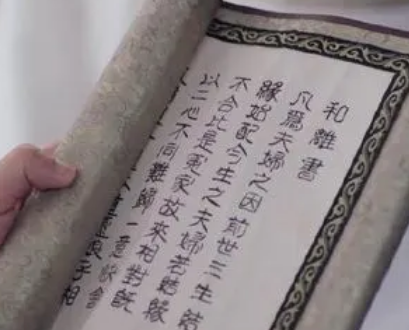 和離書
凡爲夫婦之因 前世三生結
緣始配今生之夫婦若結緣
不合比是冤家故來相對既
以二心不同難歸一意快會
子相